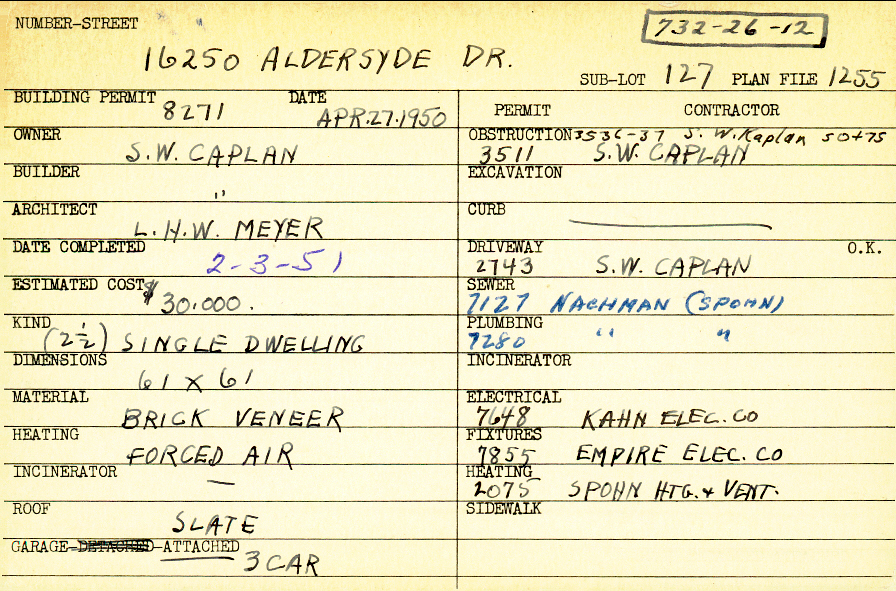 NUMBER-STREET
732-26-12
16250 ALDERSYDE DR.
SUB-LOT 127 PLAN FILE 1255
BUILDING PERMIT 8271 DATE APR.27.1950
OWNER S.W. CAPLAN
BUILDER "
ARCHITECT L.H.W. MEYER
DATE COMPLETED 2-3-51
ESTIMATED COST $30.000.
KIND (2½) SINGLE DWELLING
DIMENSIONS 61 X 61
MATERIAL BRICK VENEER
HEATING FORCED AIR
INCINERATOR —
ROOF SLATE
GARAGE-DETACHED-ATTACHED 3 CAR
PERMIT CONTRACTOR
OBSTRUCTION 3536-37 S. W. Kaplan 50+75
3511 S.W. CAPLAN
EXCAVATION
CURB
DRIVEWAY O.K.
2743 S.W. CAPLAN
SEWER
7127 NACHMAN (SPOHN)
PLUMBING
7280 " "
INCINERATOR
ELECTRICAL
7648 KAHN ELEC. CO
FIXTURES
7855 EMPIRE ELEC. CO
HEATING
2075 SPOHN HTG. & VENT.
SIDEWALK